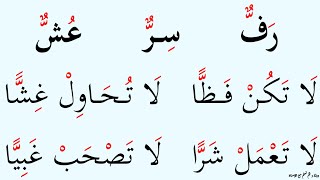 رَفٌّ سِرٌّ عُشٌّ
لَا تَكُنْ فَظًّا لَا تُحَاوِلْ غِشًّا
لَا تَعْمَلْ شَرًّا لَا تَصْحَبْ غَبِيًّا